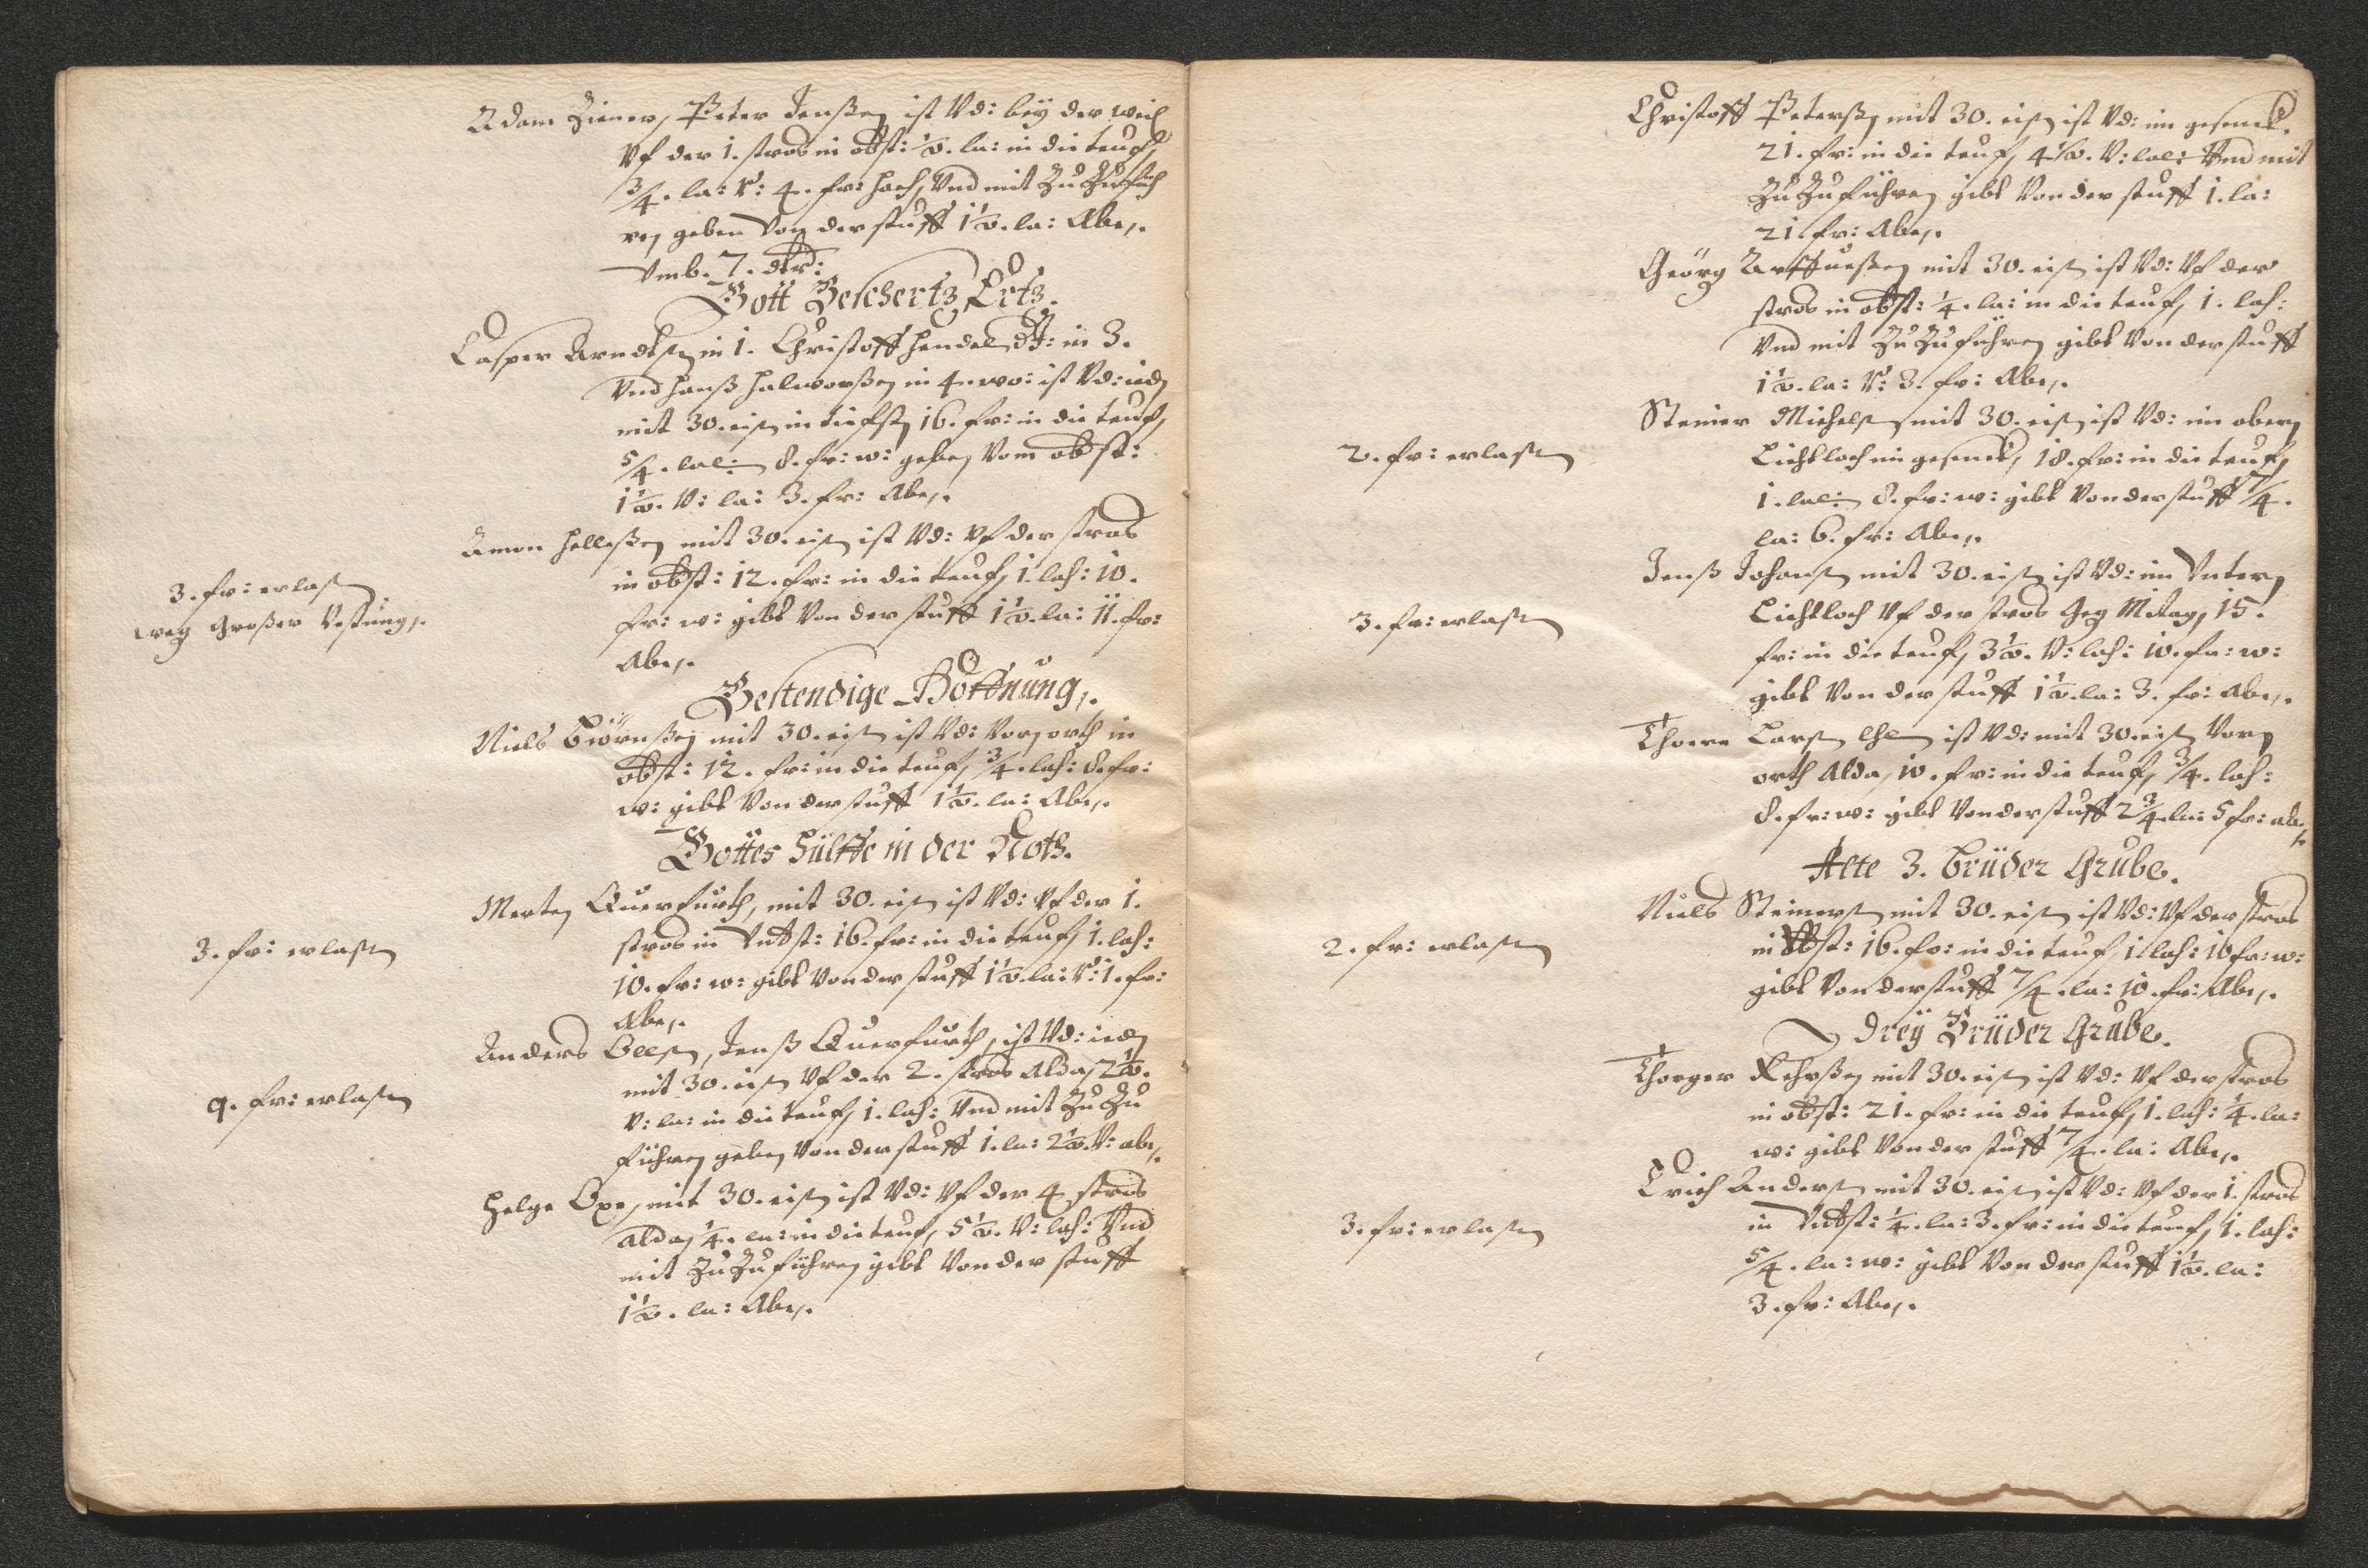 Adam Ziener, Peter Jenßen ist Vd: beÿ der weil
Vf der 1. stros in obst: ½. la: in die teuf,
¾. la: V: 4. fr: hoch, Vnd mit Zu Zufüh
ren geben Von der stuff 1½. la: Abe,.
Vmb. 7. dlr:
Gott Beschertz Ertz.
Casper Arndtsen in 1. Christoff Hendel dJ: in 3.
Vnd Hanß Halworßen in 4. wo: ist Vd: ieden
mit 30. eisen in tiefsten 16. fr: in die teuf,
5/4. lal: 8. fr: w: geben Vom obst:
1½. V: la: 3. fr: Abe,.
Amon Helleßen mit 30. eisen ist Vd: Vf der stros
in obst: 12. fr: in die teuf, 1. lah: 10.
fr: w: gibt Von der stuff 1½. la: 11. fr:
Abe,.
3. fr: erlasen
weg Großer Vestung,.
Bestendige Hoffnung,.
Niels Biörnßen mit 30. eisen ist Vd: Vorn orth in
obst: 12. fr: in die teuf, ¾. lah: 8. fr:
w: gibt Von der stuff 1½. la: Abe,.
Gottes Hülffe in der Noth.
Merten Querfurth, mit 30. eisen ist Vd: Vf der 1.
stros in Vndst: 16. fr: in die teuf, 1. lah:
10. fr: w: gibt Von der stuff 1½. la: V: 1. fr:
Abe,.
3. fr: erlasen
Anders Olesen, Jenß Querfurth, ist Vd: ieden
mit 30. eisen Vf der 2. stros Alda, 2½.
V: la: in die teuf, 1. lah: Vnd mit Zu Zu
führen geben Von der stuff 1. la: 2½. V: abe,.
9. fr: erlasen
Helge Oxe, mit 30. eisen ist Vd: Vf der 4 stros
alda, ¼. la: in die teuf, 5½. V: lah: Vnd
mit Zu Zuführen gibt Von der stuff
1½. la: Abe,.
Christoff Peterßen mit 30. eisen ist Vd: im gesenck.
21. fr: in die teuf, 4½. V: lal: Vnd mit
Zu Zuführen gibt Von der stuff 1. la:
21. fr: Abe,.
Geörg mit 30. eisen ist Vd: Vf der
stros in obst: ¼. la: in die teuf, 1. lah:
Vnd mit Zu Zuführen gibt Von der stuff
1½. la: V: 3. fr: Abe,.
Steiner Michelsen mit 30. eisen ist Vd: im obern
Lichtloch im gesenck, 18. fr: in die teuf,
1. lal: 8. fr: w: gibt Von der stuff 7/4.
la: 6. fr: Abe,.
2. fr: erlasen
Jenß Johansen mit 30. eisen ist Vd: im Vntern
Lichtloch Vf der stros Geg Mitag, 15.
fr: in die teuf, 3½. V: lah: 10. fr: w:
gibt Von der stuff 1½. la: 3. fr: Abe,.
3. fr: erlasen
Thoere Larsen ist Vd: mit 30. eisen Vorn
orth Alda, 10. fr: in die teuf, ¾. lah:
8. fr: w: gibt Von der stuff 2¾. la: 5 fr: abe,.
Alte 3. Brüder Grube.
Niels Steinersen mit 30. eisen ist Vd: Vf der stros
in obst: 16. fr: in die teuf 1. lah: 10 fr: w:
gibt Von der stuff 7/4. la: 10. fr: Abe,.
2. fr: erlasen
Dreÿ Brüder Grube.
Thorger mit 30. eisen ist Vd: Vf der stros
in obst: 21. fr: in die teuf, 1. lah: ¼. la:
w: gibt Von der stuff 7/4. la: Abe,.
Erich Andersen mit 30. eisen ist Vd: Vf der 1. stros
in Vndst: ¼. la: 3. fr: in die teuf, 1. lah:
5/4. la: w: gibt Von der stuff 1½. la:
3. fr: Abe,.
3. fr: erlasen